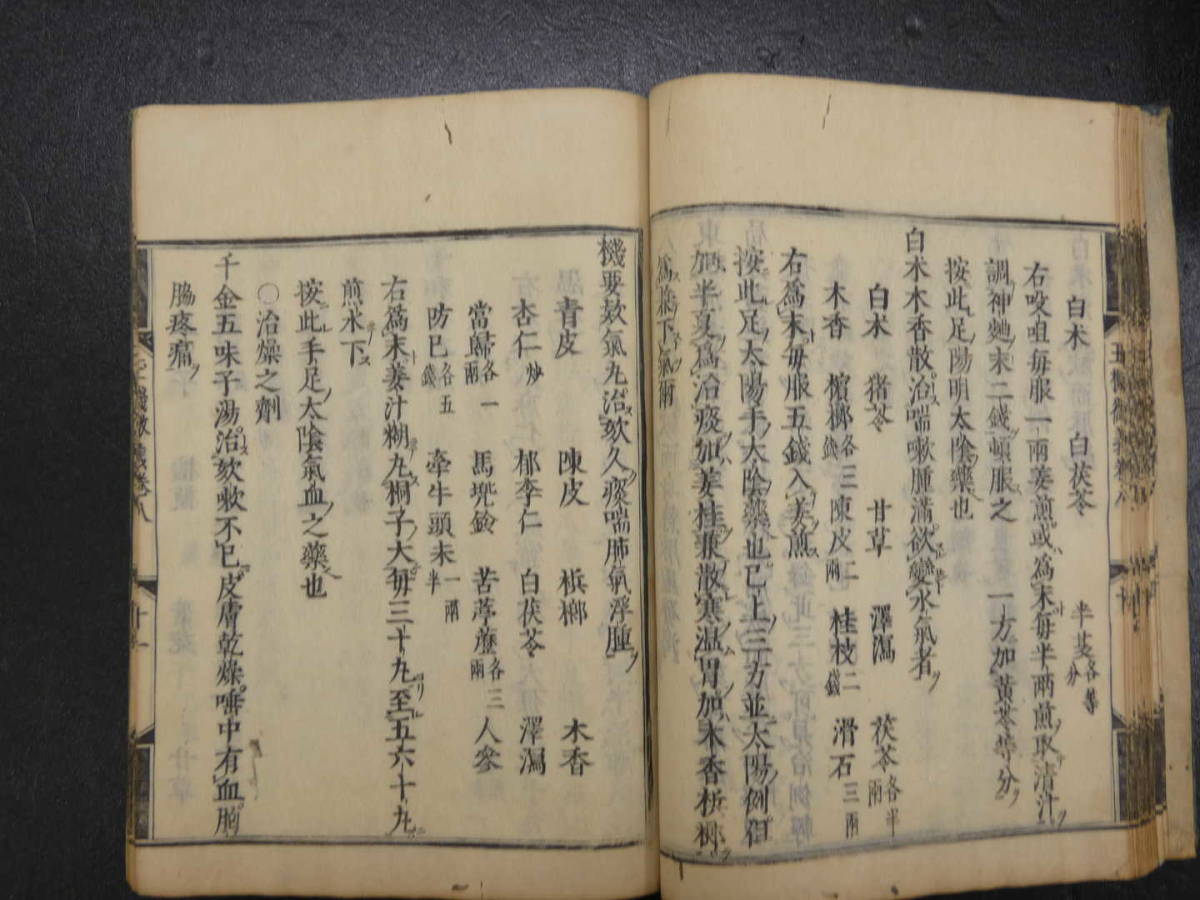 白朮　白茯苓　半芟各等分
右㕮咀每服一兩姜煎或為末每半兩煎取清汁
調神麴末二錢頓服之　一方加黃芩等分
按此足陽明太陰藥也
白朮木香散治喘嗽腫滿欲變水氣者
白朮　猪苓　甘草　澤瀉　茯苓各半兩
木香　檳榔各三錢　陳皮二兩　桂枝二錢　滑石三兩
右為末每服五錢入姜煎
按此足太陽手太陰藥也已上三方並太陽例但
東加半夏為治痰加姜桂兼散寒温胃加木香梹榔
為兼下氣爾
機要欬氣丸治欬久痰喘肺氣浮腫
青皮　陳皮　梹榔　木香
杏仁炒　郁李仁　白茯苓　澤瀉
當歸各一兩　馬兜鈴　苦葶藶各三兩　人參
防已各五錢　牽牛頭末一兩半
右為末姜汁糊丸桐子大每三十丸至五六十丸
煎水下
按此手足太陰氣血之藥也
○治燥之劑
千金五味子湯治欬嗽不已皮膚乾燥唾中有血胸
脇疼痛
十一